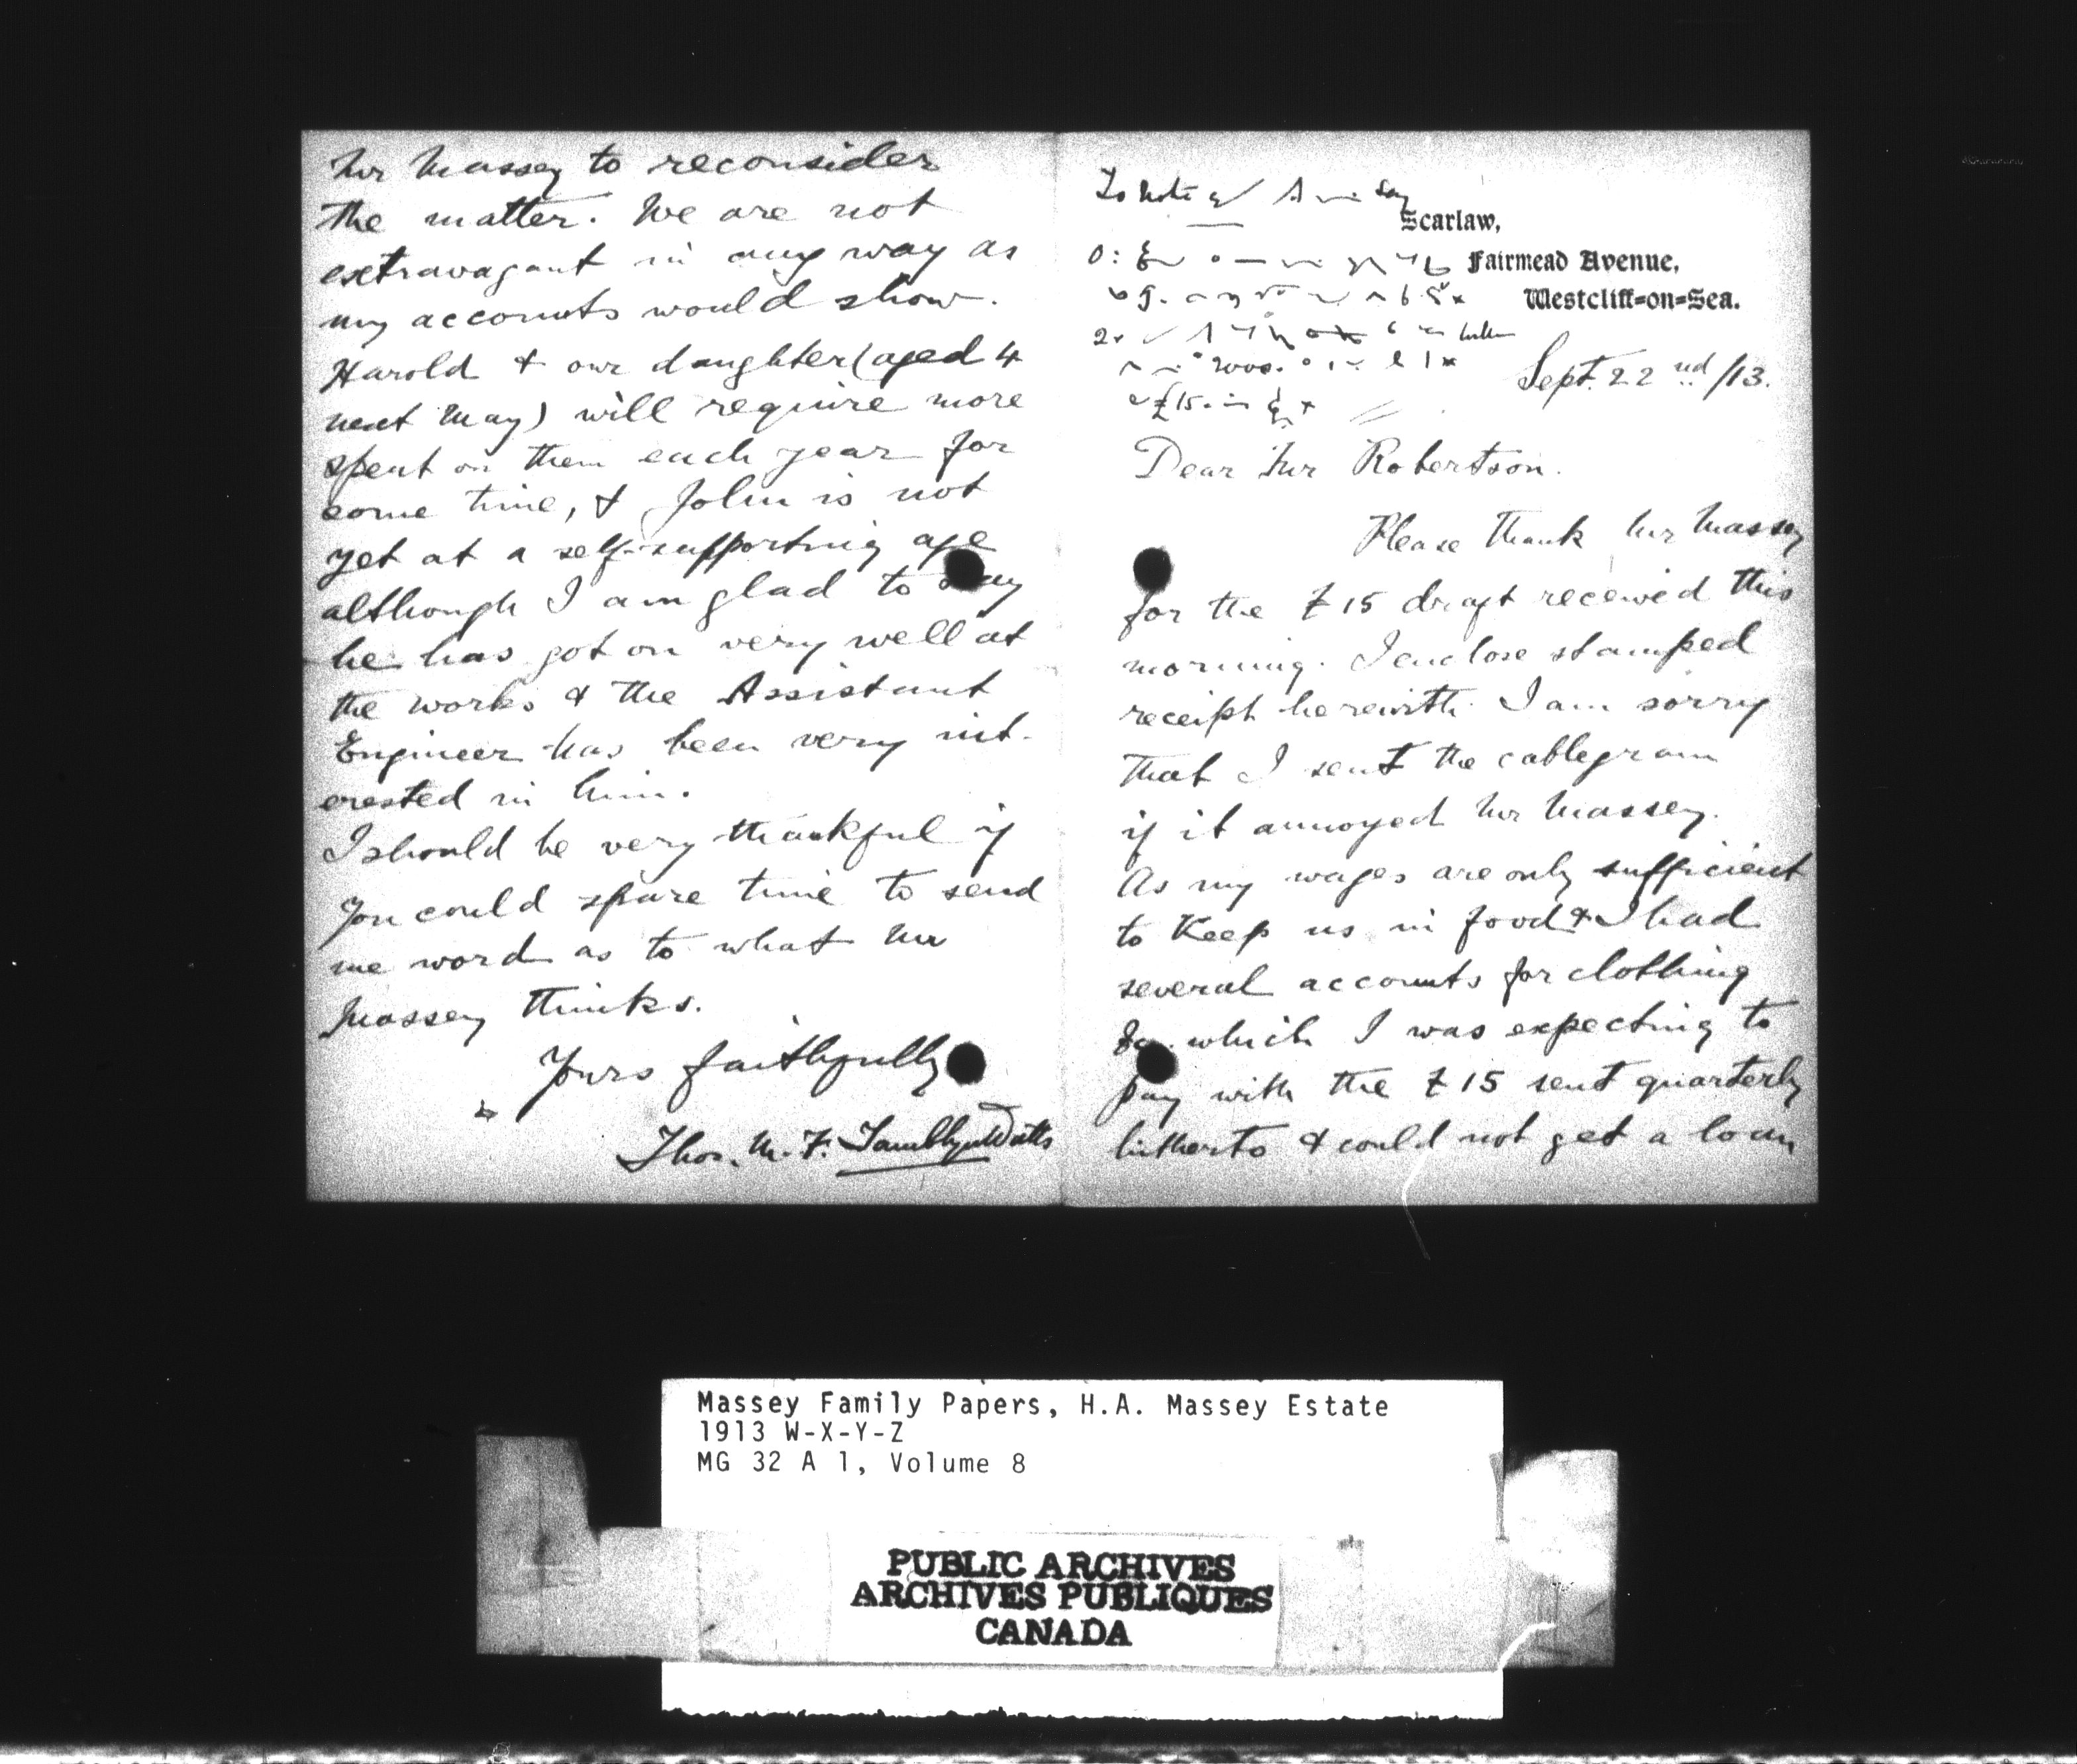 Scarlaw,
Fairmead Avenue,
Westcliff=on=Sea.
Sept. 22nd/13.
£15
Dear Mr Robertson.
Please thank Mr Massey
for the £15 draft received this
morning. I enclose stamped
receipt herewith. I am sorry
that I sent the cablegram
if it annoyed Mr Massey.
As my wages are only sufficient
to keep us in food & I had
several accounts for clothing
for which I was expecting to
pay with the £15 sent quarterly
hitherto & could not get a loan
Mr Massey to reconsider
the matter. We are not
extravagant in any way as
my accounts would show.
Harold & our daughter (aged 4
next May) will require more
spent on them each year for
some time, & John is not
yet at a self-supporting age
although I am glad to say
he has got on very well at
the works & the Assistant
Engineer has been very int-
erested in him.
I should be very thankful if
you could spare time to send
me word as to what Mr
Massey thinks.
Yours faithfully
Thos. M. F. Tamblyn Watts
Massey Family Papers, H.A. Massey Estate
1913 W-X-Y-Z
MG 32 A 1, Volume 8
PUBLIC ARCHIVES
ARCHIVES PUBLIQUES
CANADA